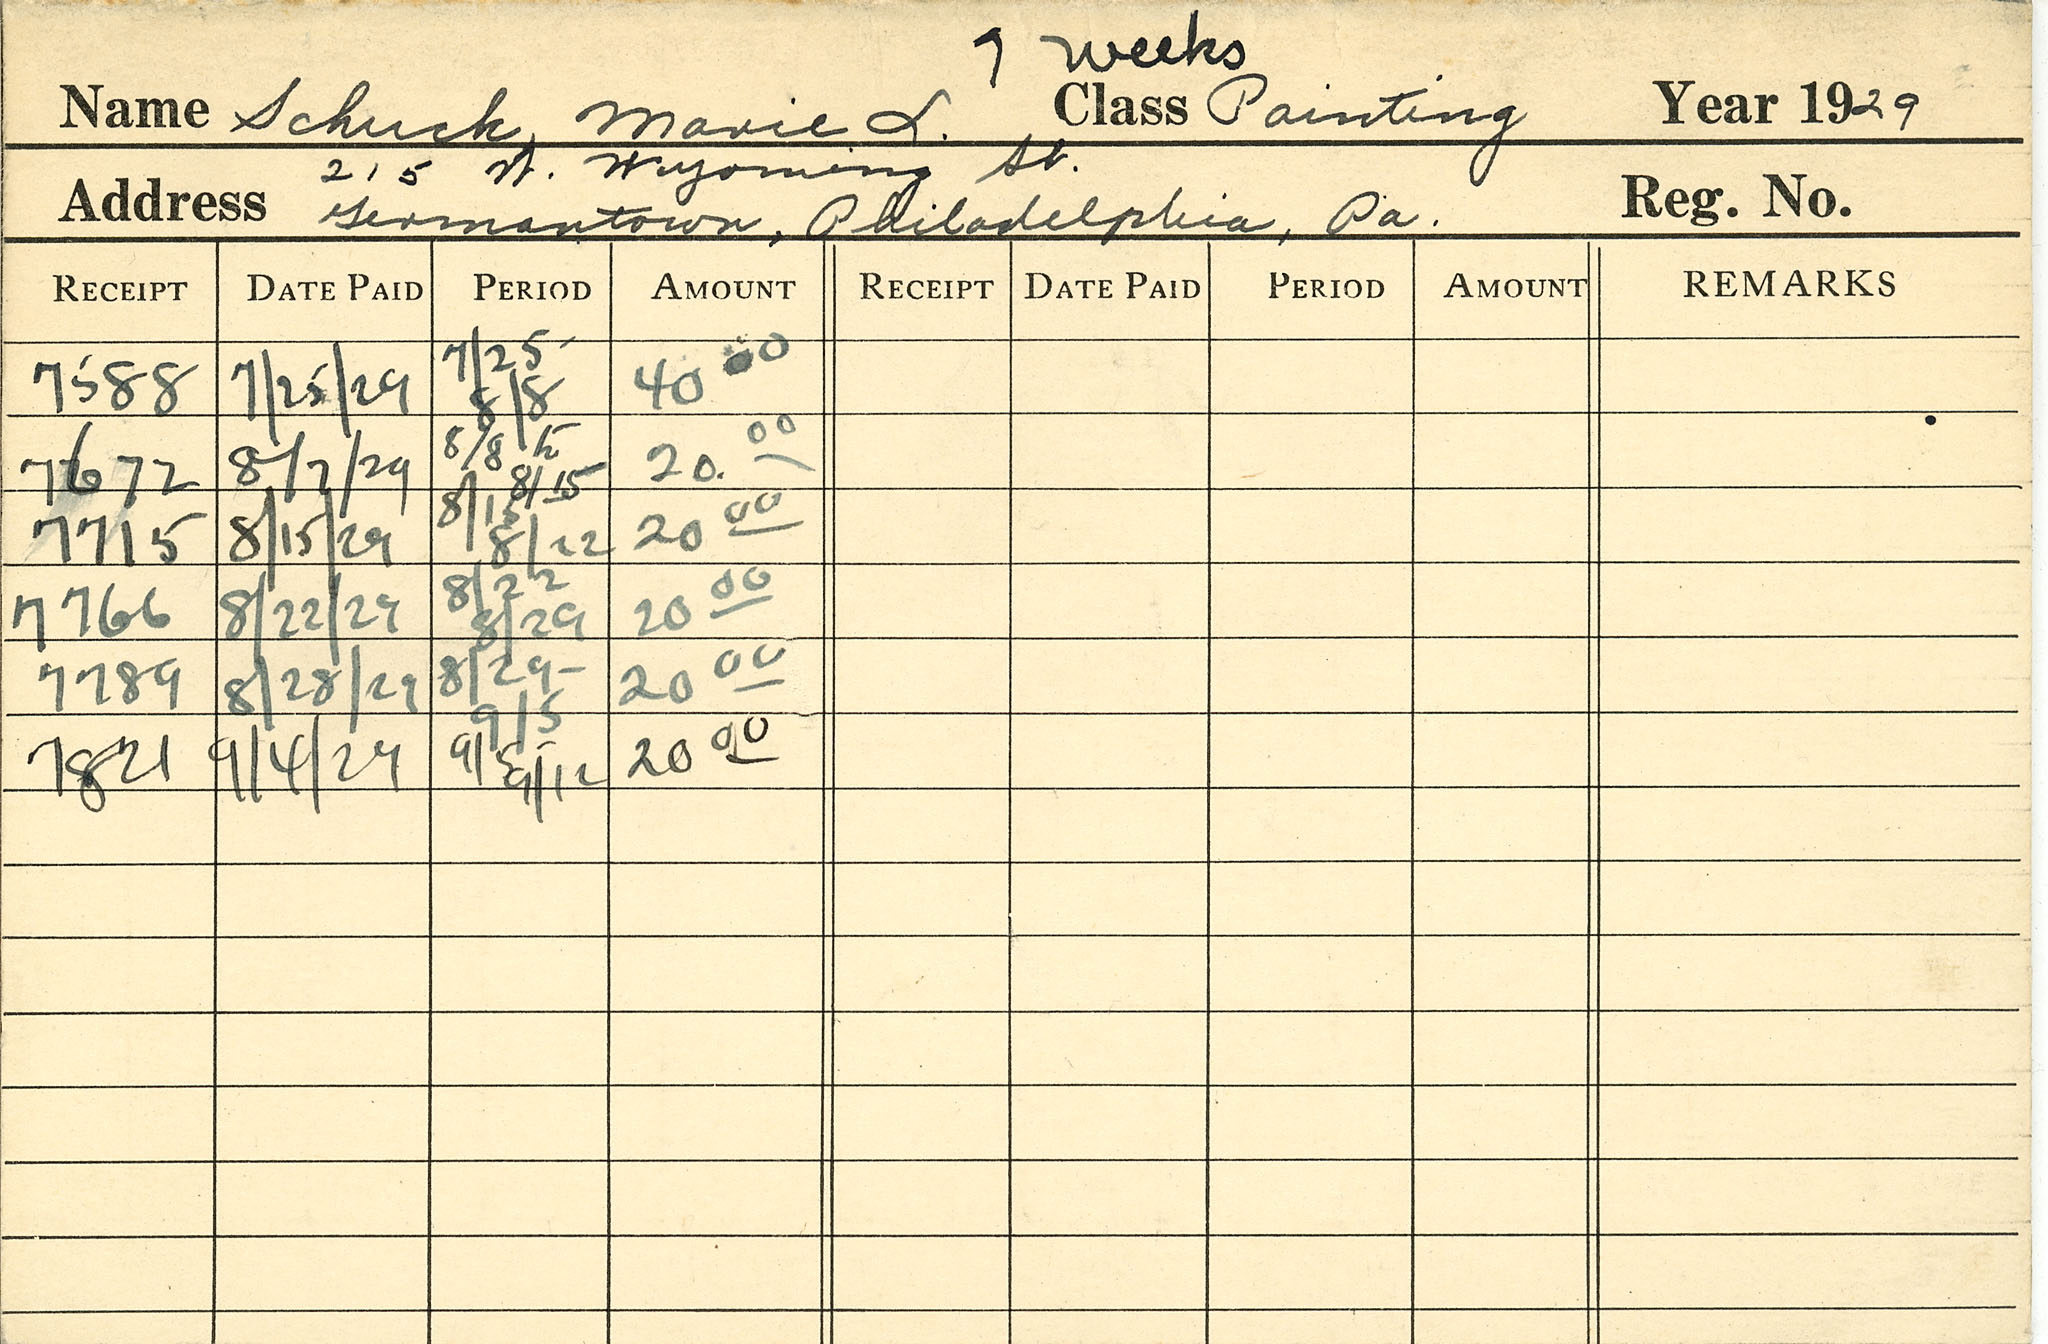 7 weeks
Name Schuck, Marie L. Class Painting Year 1929
215 W. Wyoming St.
Address Germantown, Philadelphia, Pa. Reg. No.
RECEIPT DATE PAID PERIOD AMOUNT RECEIPT DATE PAID PERIOD AMOUNT REMARKS
7588 7/25/29 7/25- 8/8 40 00
7672 8/7/29 8/8 to 8/15 20.00
7715 8/15/29 8/15 8/22 20 00
7766 8/22/29 8/22 8/29 20 00
7789 8/28/29 8/29- 9/5 20 00
7821 9/4/29 9/5- 9/12 20 00